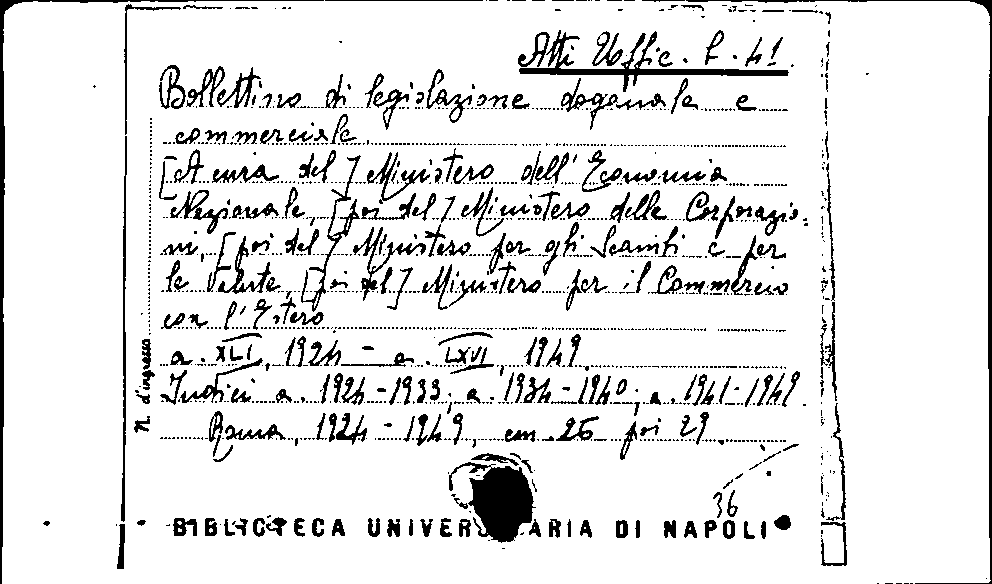 Atti Uffic. L. 41
Bollettino di legislazione doganale e
commerciale.
[A cura del] Ministero dell'Economia
Nazionale, [poi del] Ministero delle Corporazio-
ni, [poi del] Ministero per gli Scambi e per
le Valute, [poi del] Ministero per il Commercio
con l'Estero
a. XLI, 1924 - a. LXVI, 1949.
Indici a. 1924-1933; a. 1934-1940; a. 1941-1949.
Roma, 1924 - 1949, cm. 26 poi 29.
N. d'ingresso
36
BIBLIOTECA UNIVERSITARIA DI NAPOLI